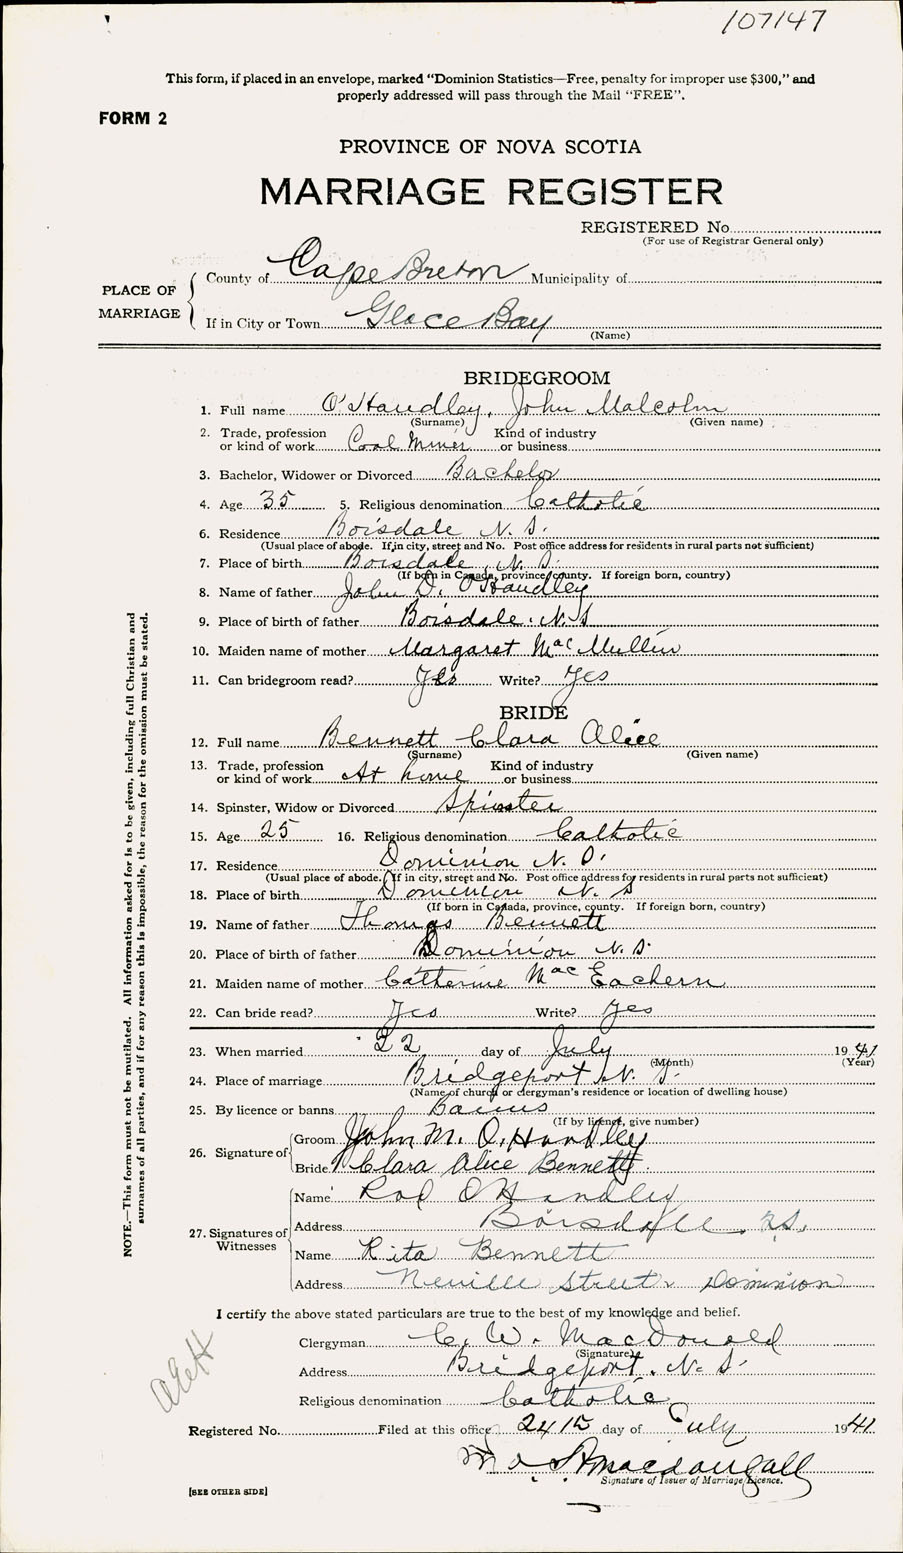 107147
This form, if placed in an envelope, marked “Dominion Statistics—Free, penalty for improper use $300,” and
properly addressed will pass through the Mail “FREE”.
FORM 2
PROVINCE OF NOVA SCOTIA
MARRIAGE REGISTER
REGISTERED No
(For use of Registrar General only)
PLACE OF MARRIAGE
County of Cape Breton Municipality of
If in City or Town Glace Bay
(Name)
BRIDEGROOM
1. Full name O'Handley, John Malcolm
(Surname) (Given name)
2. Trade, profession or kind of work Coal Miner Kind of industry or business
3. Bachelor, Widower or Divorced Bachelor
4. Age 35 5. Religious denomination Catholic
6. Residence Boisdale N. S.
(Usual place of abode. If in city, street and No. Post office address for residents in rural parts not sufficient)
7. Place of birth Boisdale, N. S.
(If born in Canada, province, county. If foreign born, country)
8. Name of father John D. O'Handley
9. Place of birth of father Boisdale. N. S
10. Maiden name of mother Margaret MacMullin
11. Can bridegroom read? Yes Write? Yes
BRIDE
12. Full name Bennett Clara Alice
(Surname) (Given name)
13. Trade, profession or kind of work At home Kind of industry or business
14. Spinster, Widow or Divorced Spinster
15. Age 25 16. Religious denomination Catholic
17. Residence Dominion N. S.
(Usual place of abode. If in city, street and No. Post office address for residents in rural parts not sufficient)
18. Place of birth Dominion N. S
(If born in Canada, province, county. If foreign born, country)
19. Name of father Thomas Bennett
20. Place of birth of father Dominion N. S.
21. Maiden name of mother Catherine MacEachern
22. Can bride read? Yes Write? Yes
23. When married 22 day of July 1941
(Month) (Year)
24. Place of marriage Bridgeport N. S.
(Name of church or clergyman's residence or location of dwelling house)
25. By licence or banns Banns
(If by licence, give number)
26. Signature of
Groom John M. O'Handley
Bride Clara Alice Bennett
27. Signatures of Witnesses
Name Rod O'Handley
Address Boisdale N.S.
Name Rita Bennett
Address Neville Street Dominion
I certify the above stated particulars are true to the best of my knowledge and belief.
Clergyman C. W. MacDonald
(Signature)
Address Bridgeport. N. S.
Religious denomination Catholic
Registered No. Filed at this office 24 day of July 1941
MacDougall
Signature of Issuer of Marriage Licence.
[SEE OTHER SIDE]
NOTE.—This form must not be mutilated. All information asked for is to be given, including full Christian and
surnames of all parties, and if for any reason this is impossible, the reason for the omission must be stated.